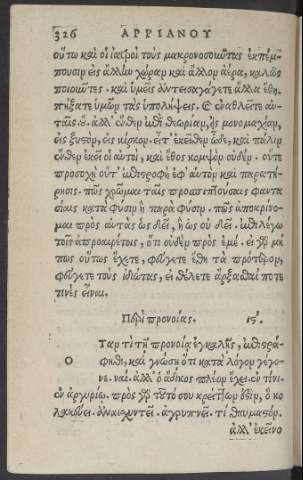 326 ΑΡΡΙΑΝΟΥ
οὕτω καὶ οἱ ἰατροὶ τοὺς μακρονοσοῦντας ἐκπέμ-
πουσιν εἰς ἄλλην χώραν καὶ ἄλλον ἀέρα, καλῶς
ποιοῦντες. καὶ ὑμεῖς ἀντεισαγάγετε ἄλλα ἔθη.
πήξατε ὑμῶν τὰς ὑπολήψεις.
ἀλλ' ἔνθεν ἐπὶ θεωρίαν, εἰς μονομαχίαν,
εἰς ξυστὸν, εἰς κίρκον. εἶτ' ἐκεῖθεν ὧδε, καὶ πάλιν
ἔνθεν ἐκεῖ οἱ αὐτοί, καὶ ἔθος κομψὸν οὐδέν. οὔτε
προσοχὴ οὔτ' ἐπιστροφὴ ἐφ' αὑτὸν καὶ παρατή-
ρησις. πῶς χρῶμαι ταῖς προσπιπούσαις φαντα
σίαις κατὰ φύσιν ἢ παρὰ φύσιν. πῶς ἀποκρίνο-
μαι πρὸς αὐτὰς ὡς δεῖ, ἢ ὡς οὐ δεῖ. ἐπιλέγω
τοῖς ἀπροαιρέτοις, ὅτι οὐδὲν πρὸς ἐμέ. εἰ γὰρ μή
πως οὕτως ἔχετε, φεύγετε ἔθη τὰ πρότερον,
φεύγετε τοὺς ἰδιώτας, εἰ θέλετε ἄρξασθαί ποτε
τινὲς εἶναι.
Περὶ προνοίας. ιζ.
Ο Ταν τῇ προνοίᾳ ἐγκαλῇς, ἐπιστρά-
φηθι, καὶ γνώσῃ ὅτι κατὰ λόγον γέγο-
νε. ναί. ἀλλ' ὁ ἄδικος πλέον ἔχει. ἐν τίνι.
ἐν ἀργυρίῳ. πρὸς γὰρ τοῦτό σου κρείττων ἐστίν, ὃ κο
λακεύει. ἀναισχυντεῖ. ἀγρυπνεῖ. τί θαυμαστόν.
ἀλλ' ἐκεῖνο